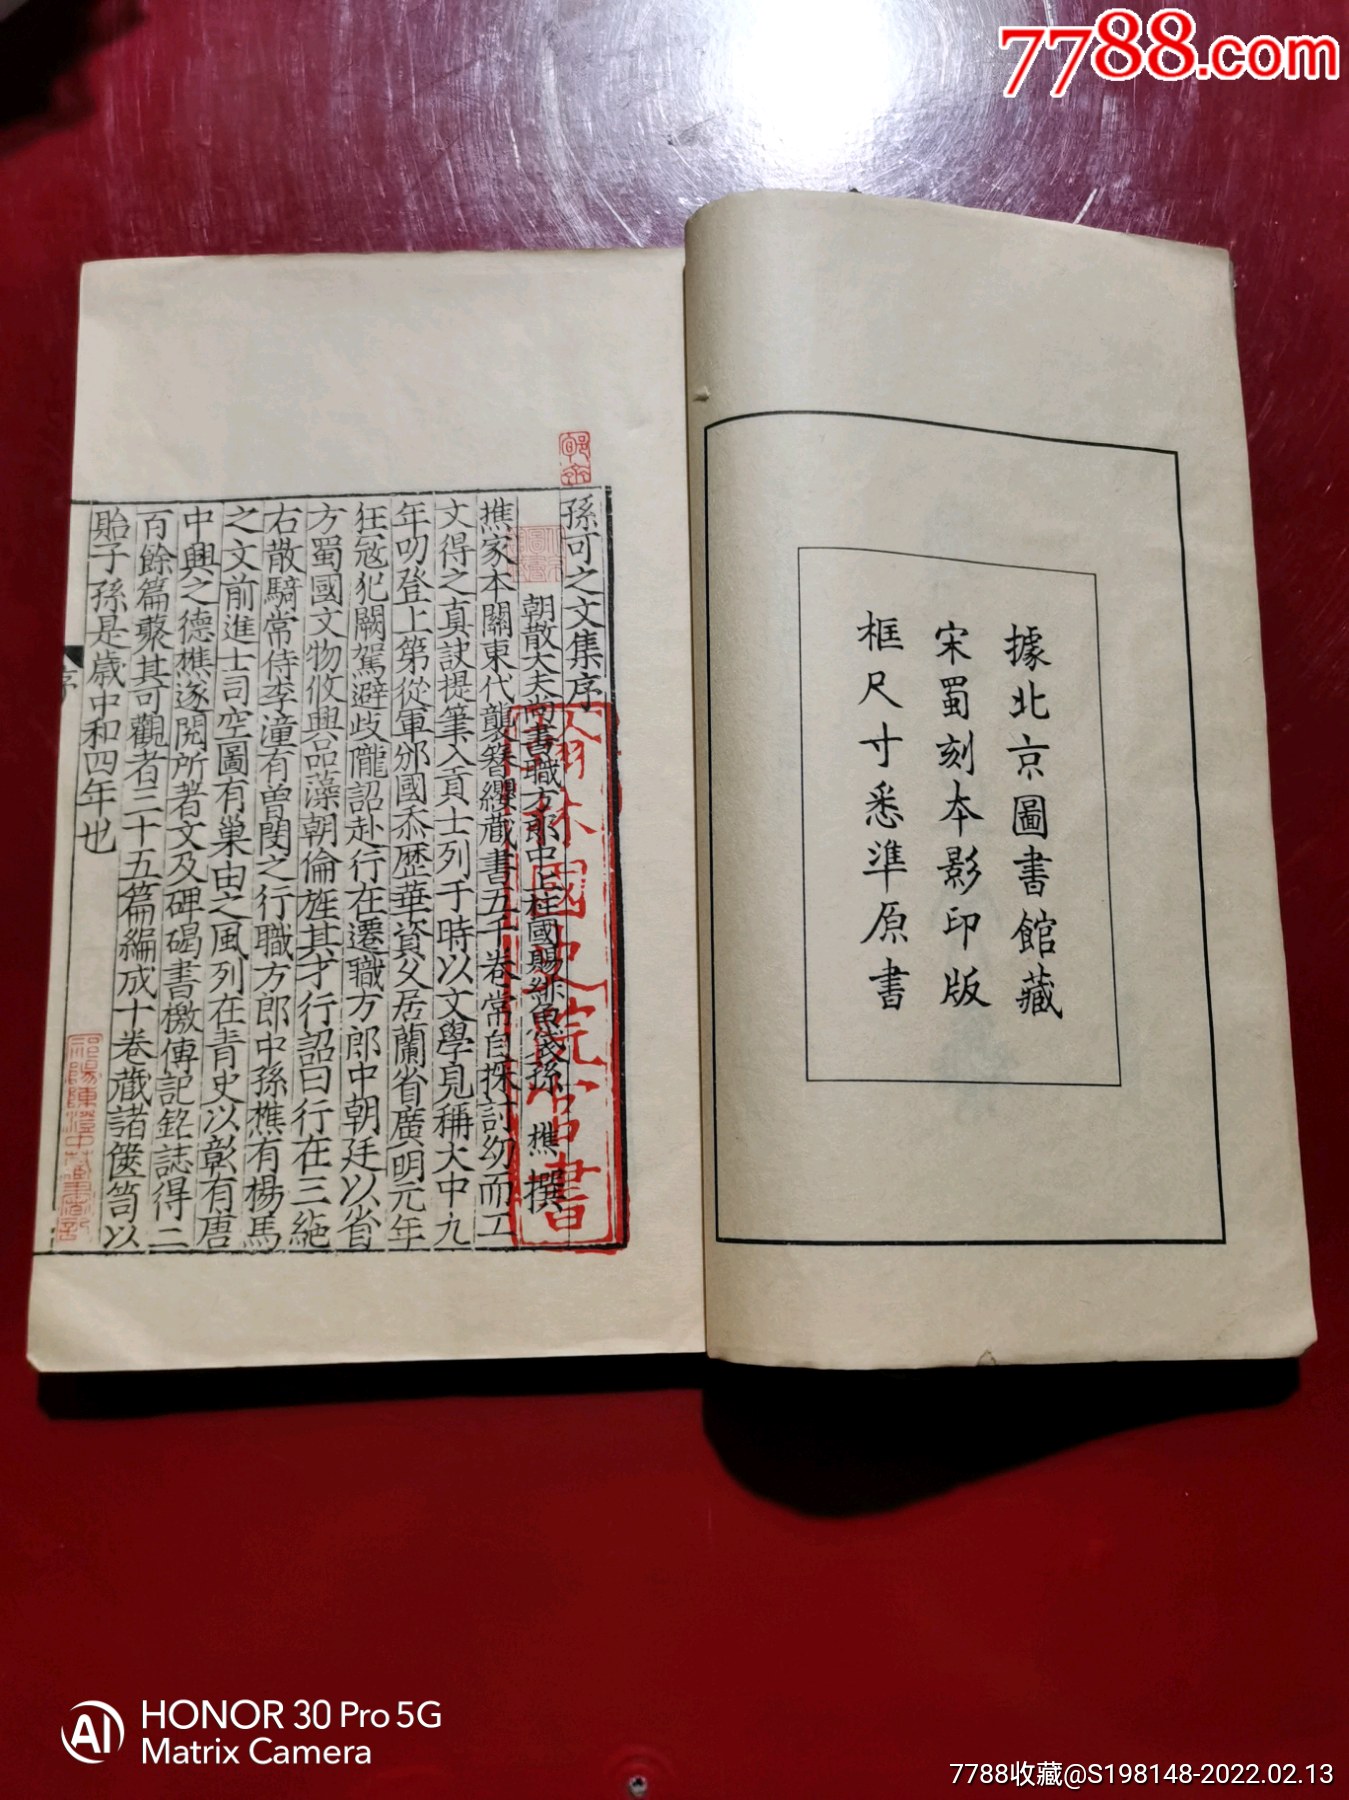 7788.com
據北京圖書館藏
宋蜀刻本影印版
框尺寸悉準原書
孫可之文集序
朝散大夫尚書職方郎中上柱國賜緋魚袋孫 樵 撰
樵家本關東代襲簪纓藏書五千卷常自探討幼而工
文得之真訣提筆入貢士列于時以文學見稱大中九
年叨登上第從軍邠國忝歷華資久居蘭省廣明元年
狂寇犯闕駕避歧隴詔赴行在遷職方郎中朝廷以省
方蜀國文物攸興品藻朝倫旌其才行詔曰行在三絶
右散騎常侍李潼有曾閔之行職方郎中孫樵有楊馬
之文前進士司空圖有巢由之風列在青史以彰有唐
中興之德樵遂閱所著文及碑碣書檄傳記銘誌得二
百餘篇藂其可觀者三十五篇編成十卷藏諸篋笥以
貽子孫是歲中和四年也
序
翰林國史院官書
HONOR 30 Pro 5G
Matrix Camera
7788收藏@S198148-2022.02.13